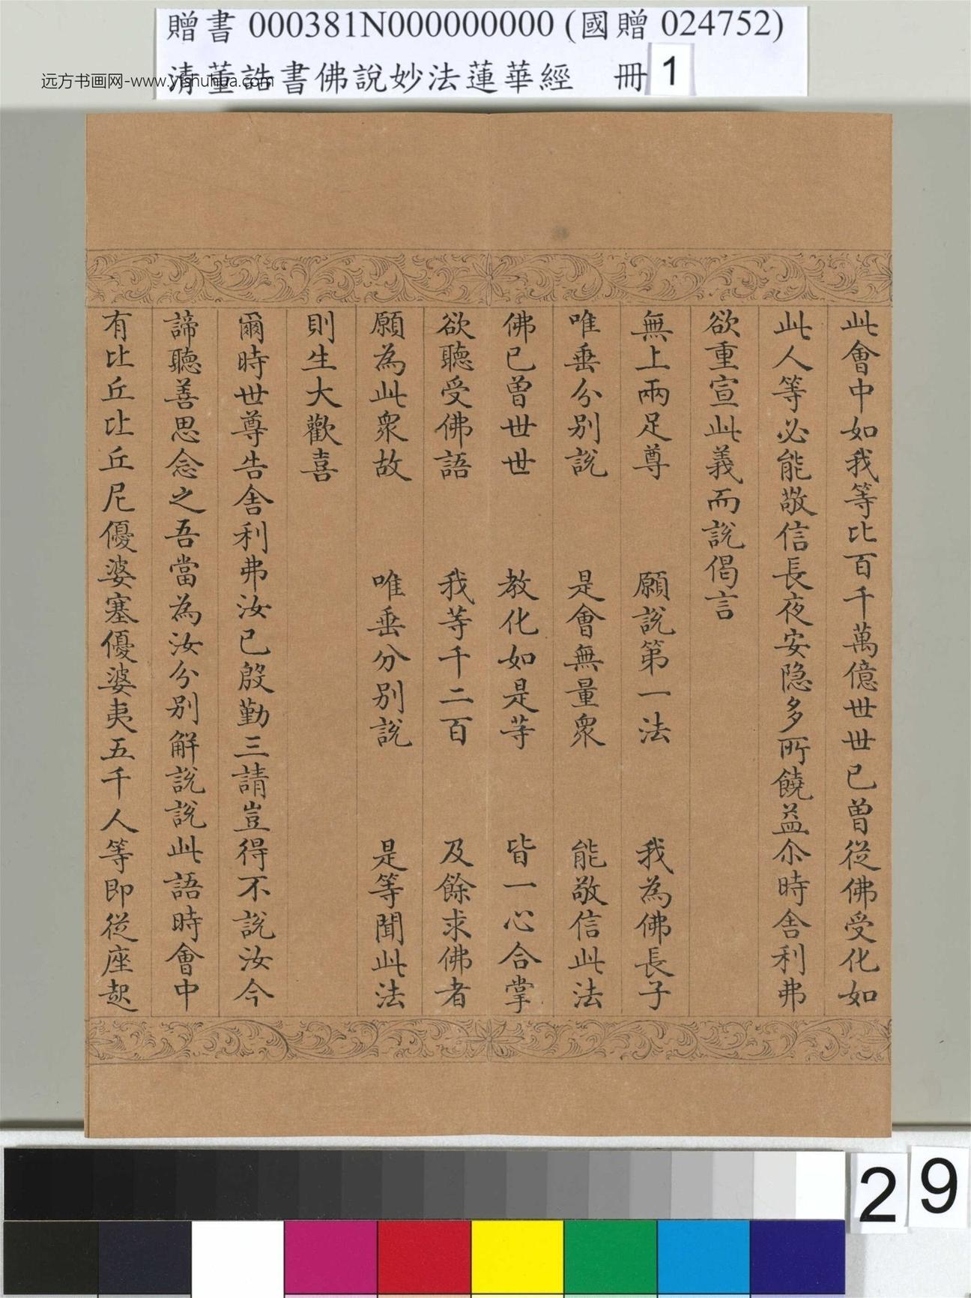 贈書 000381N000000000 (國贈 024752)
清董誥書佛說妙法蓮華經 冊 1
远方书画网-www.yishuhua.com
此會中如我等比百千萬億世世已曾從佛受化如
此人等必能敬信長夜安隐多所饒益尒時舎利弗
欲重宣此義而說偈言
無上兩足尊 願說第一法 我為佛長子
唯垂分別說 是會無量衆 能敬信此法
佛已曾世世 教化如是等 皆一心合掌
欲聽受佛語 我等千二百 及餘求佛者
願為此衆故 唯垂分別說 是等聞此法
則生大歡喜
爾時世尊告舎利弗汝已殷勤三請豈得不說汝今
諦聽善思念之吾當為汝分別解說說此語時會中
有比丘比丘尼優婆塞優婆夷五千人等即從座起
29